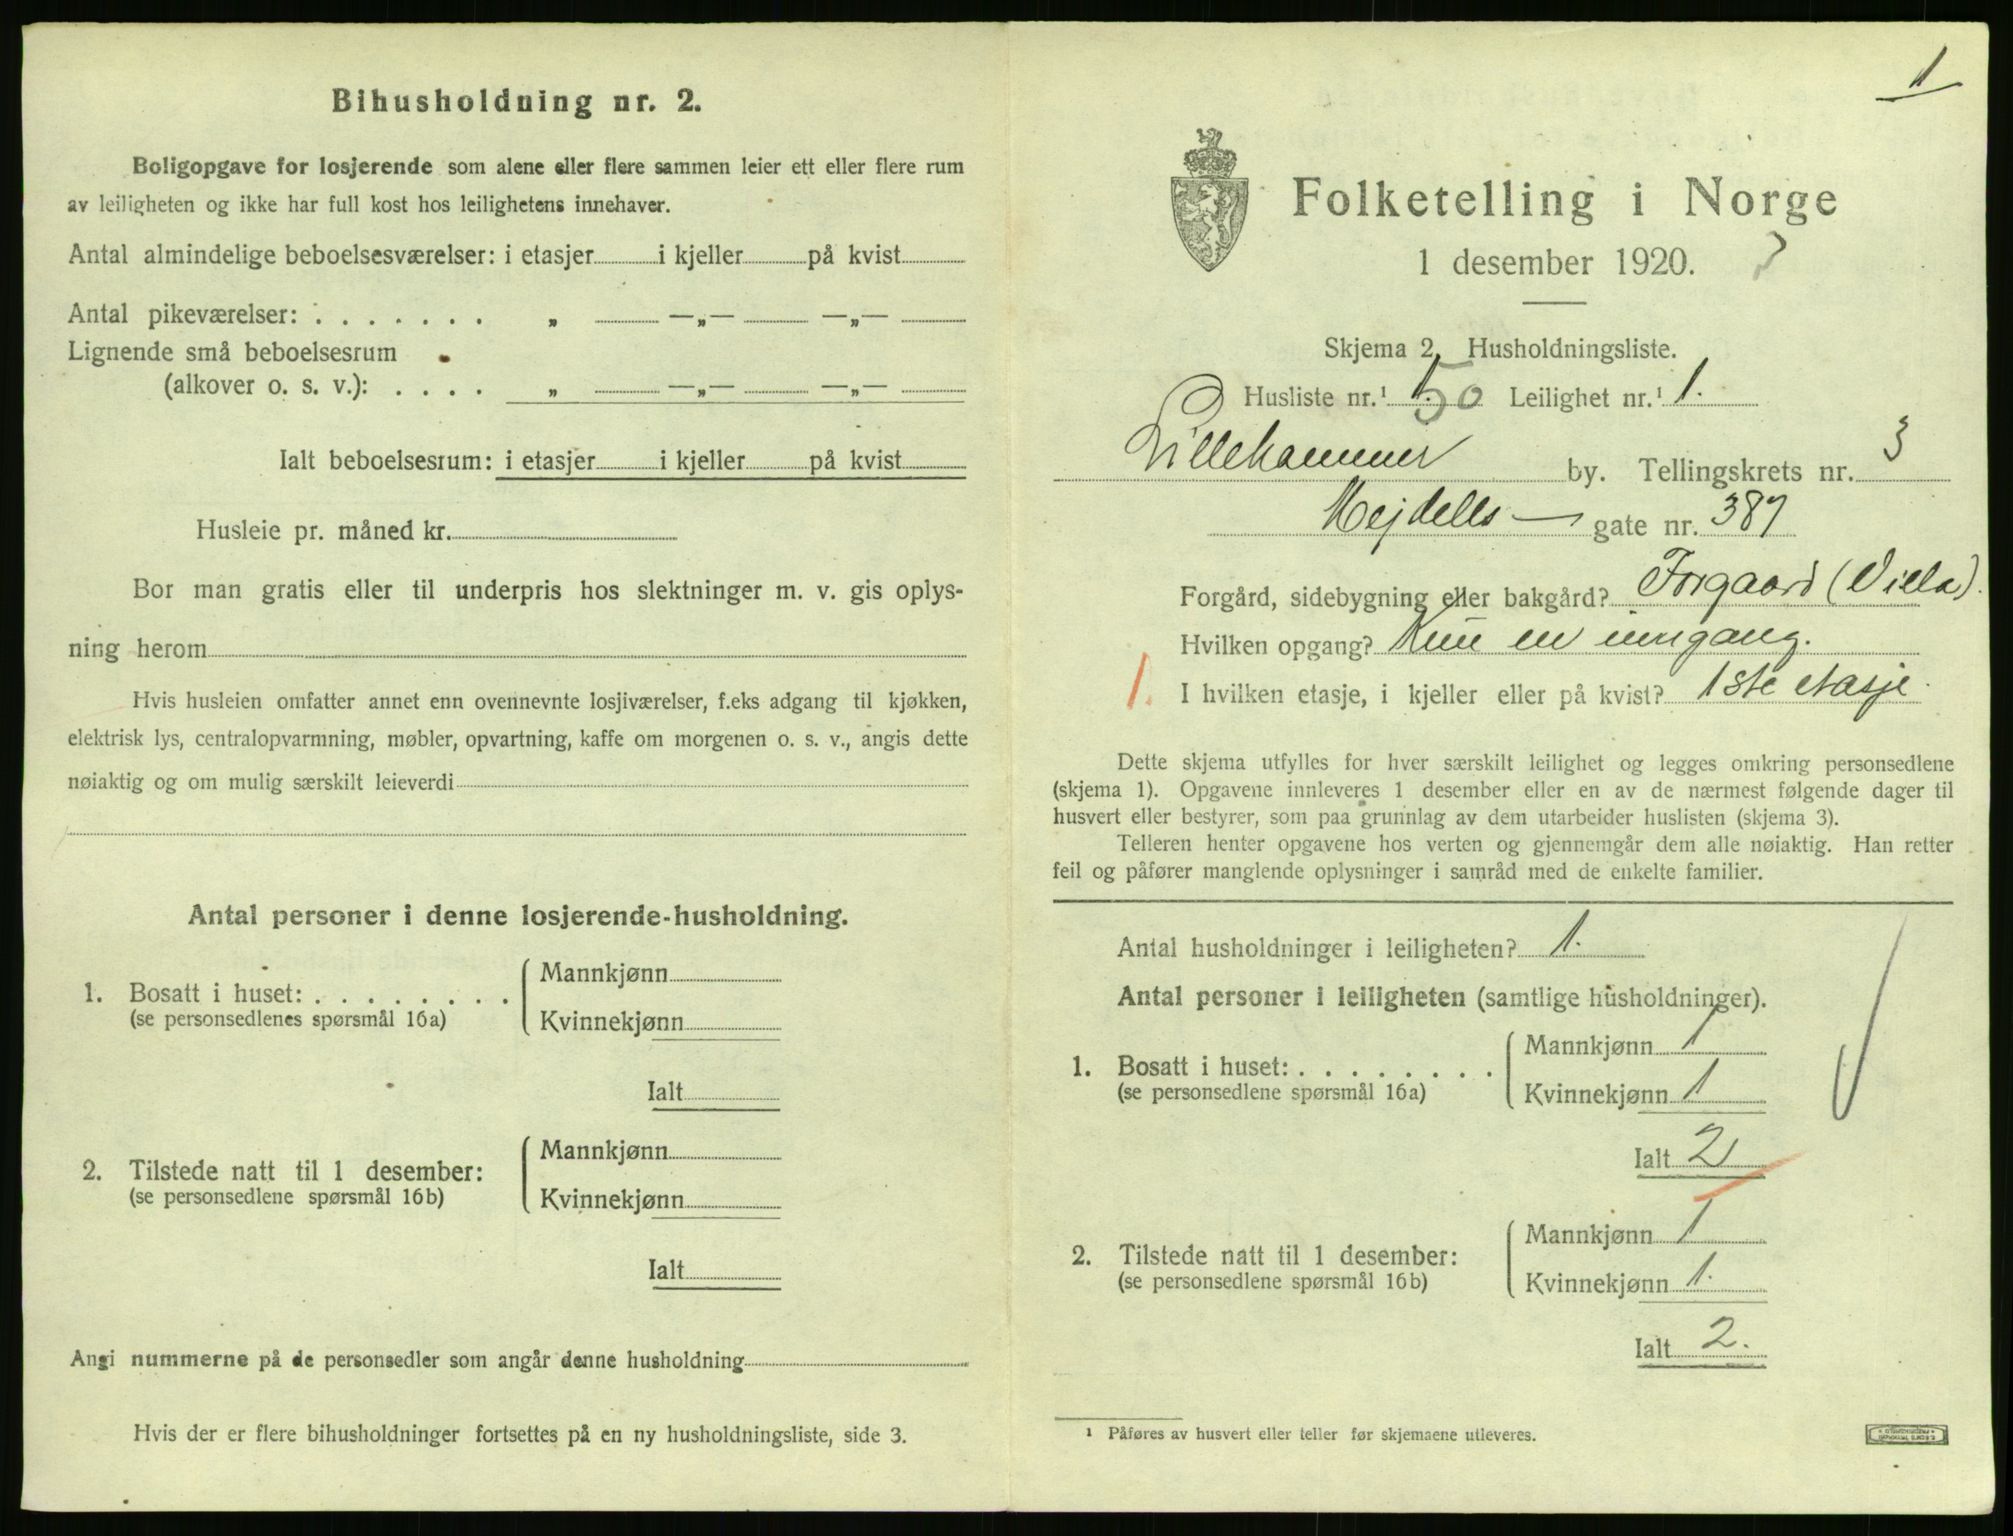 Bihusholdning nr. 2.
Boligopgave for losjerende som alene eller flere sammen leier ett eller flere rum
av leiligheten og ikke har full kost hos leilighetens innehaver.
Antal almindelige beboelsesværelser: i etasjer i kjeller på kvist
Antal pikeværelser: . . . . . . . „ —„— —„—
Lignende små beboelsesrum
(alkover o. s. v.): . . . . „ —„— —„—
Ialt beboelsesrum: i etasjer i kjeller på kvist
Husleie pr. måned kr.
Bor man gratis eller til underpris hos slektninger m. v. gis oplys-
ning herom
Hvis husleien omfatter annet enn ovennevnte losjiværelser, f.eks adgang til kjøkken,
elektrisk lys, centralopvarmning, møbler, opvartning, kaffe om morgenen o. s. v., angis dette
nøiaktig og om mulig særskilt leieverdi
Antal personer i denne losjerende-husholdning.
1. Bosatt i huset: . . . . . . . .
(se personsedlenes spørsmål 16a)
Mannkjønn
Kvinnekjønn
Ialt
2. Tilstede natt til 1 desember:
(se personsedlene spørsmål 16b)
Mannkjønn
Kvinnekjønn
Ialt
Angi nummerne på de personsedler som angår denne husholdning
Hvis der er flere bihusholdninger fortsettes på en ny husholdningsliste, side 3.
1
Folketelling i Norge
1 desember 1920.
Skjema 2. Husholdningsliste.
Husliste nr.¹ 50 Leilighet nr.¹ 1.
Lillehammer by. Tellingskrets nr. 3
Mejdells — gate nr. 387
Forgård, sidebygning eller bakgård? Forgaard (Villa).
Hvilken opgang? Kun en inngang.
1. I hvilken etasje, i kjeller eller på kvist? 1ste etasje.
Dette skjema utfylles for hver særskilt leilighet og legges omkring personsedlene
(skjema 1). Opgavene innleveres 1 desember eller en av de nærmest følgende dager til
husvert eller bestyrer, som paa grunnlag av dem utarbeider huslisten (skjema 3).
Telleren henter opgavene hos verten og gjennemgår dem alle nøiaktig. Han retter
feil og påfører manglende oplysninger i samråd med de enkelte familier.
Antal husholdninger i leiligheten? 1.
Antal personer i leiligheten (samtlige husholdninger).
1. Bosatt i huset: . . . . . . . .
(se personsedlene spørsmål 16a)
Mannkjønn 1
Kvinnekjønn 1
Ialt 2
2. Tilstede natt til 1 desember:
(se personsedlene spørsmål 16b)
Mannkjønn 1
Kvinnekjønn 1.
Ialt 2.
¹ Påføres av husvert eller teller før skjemaene utleveres.